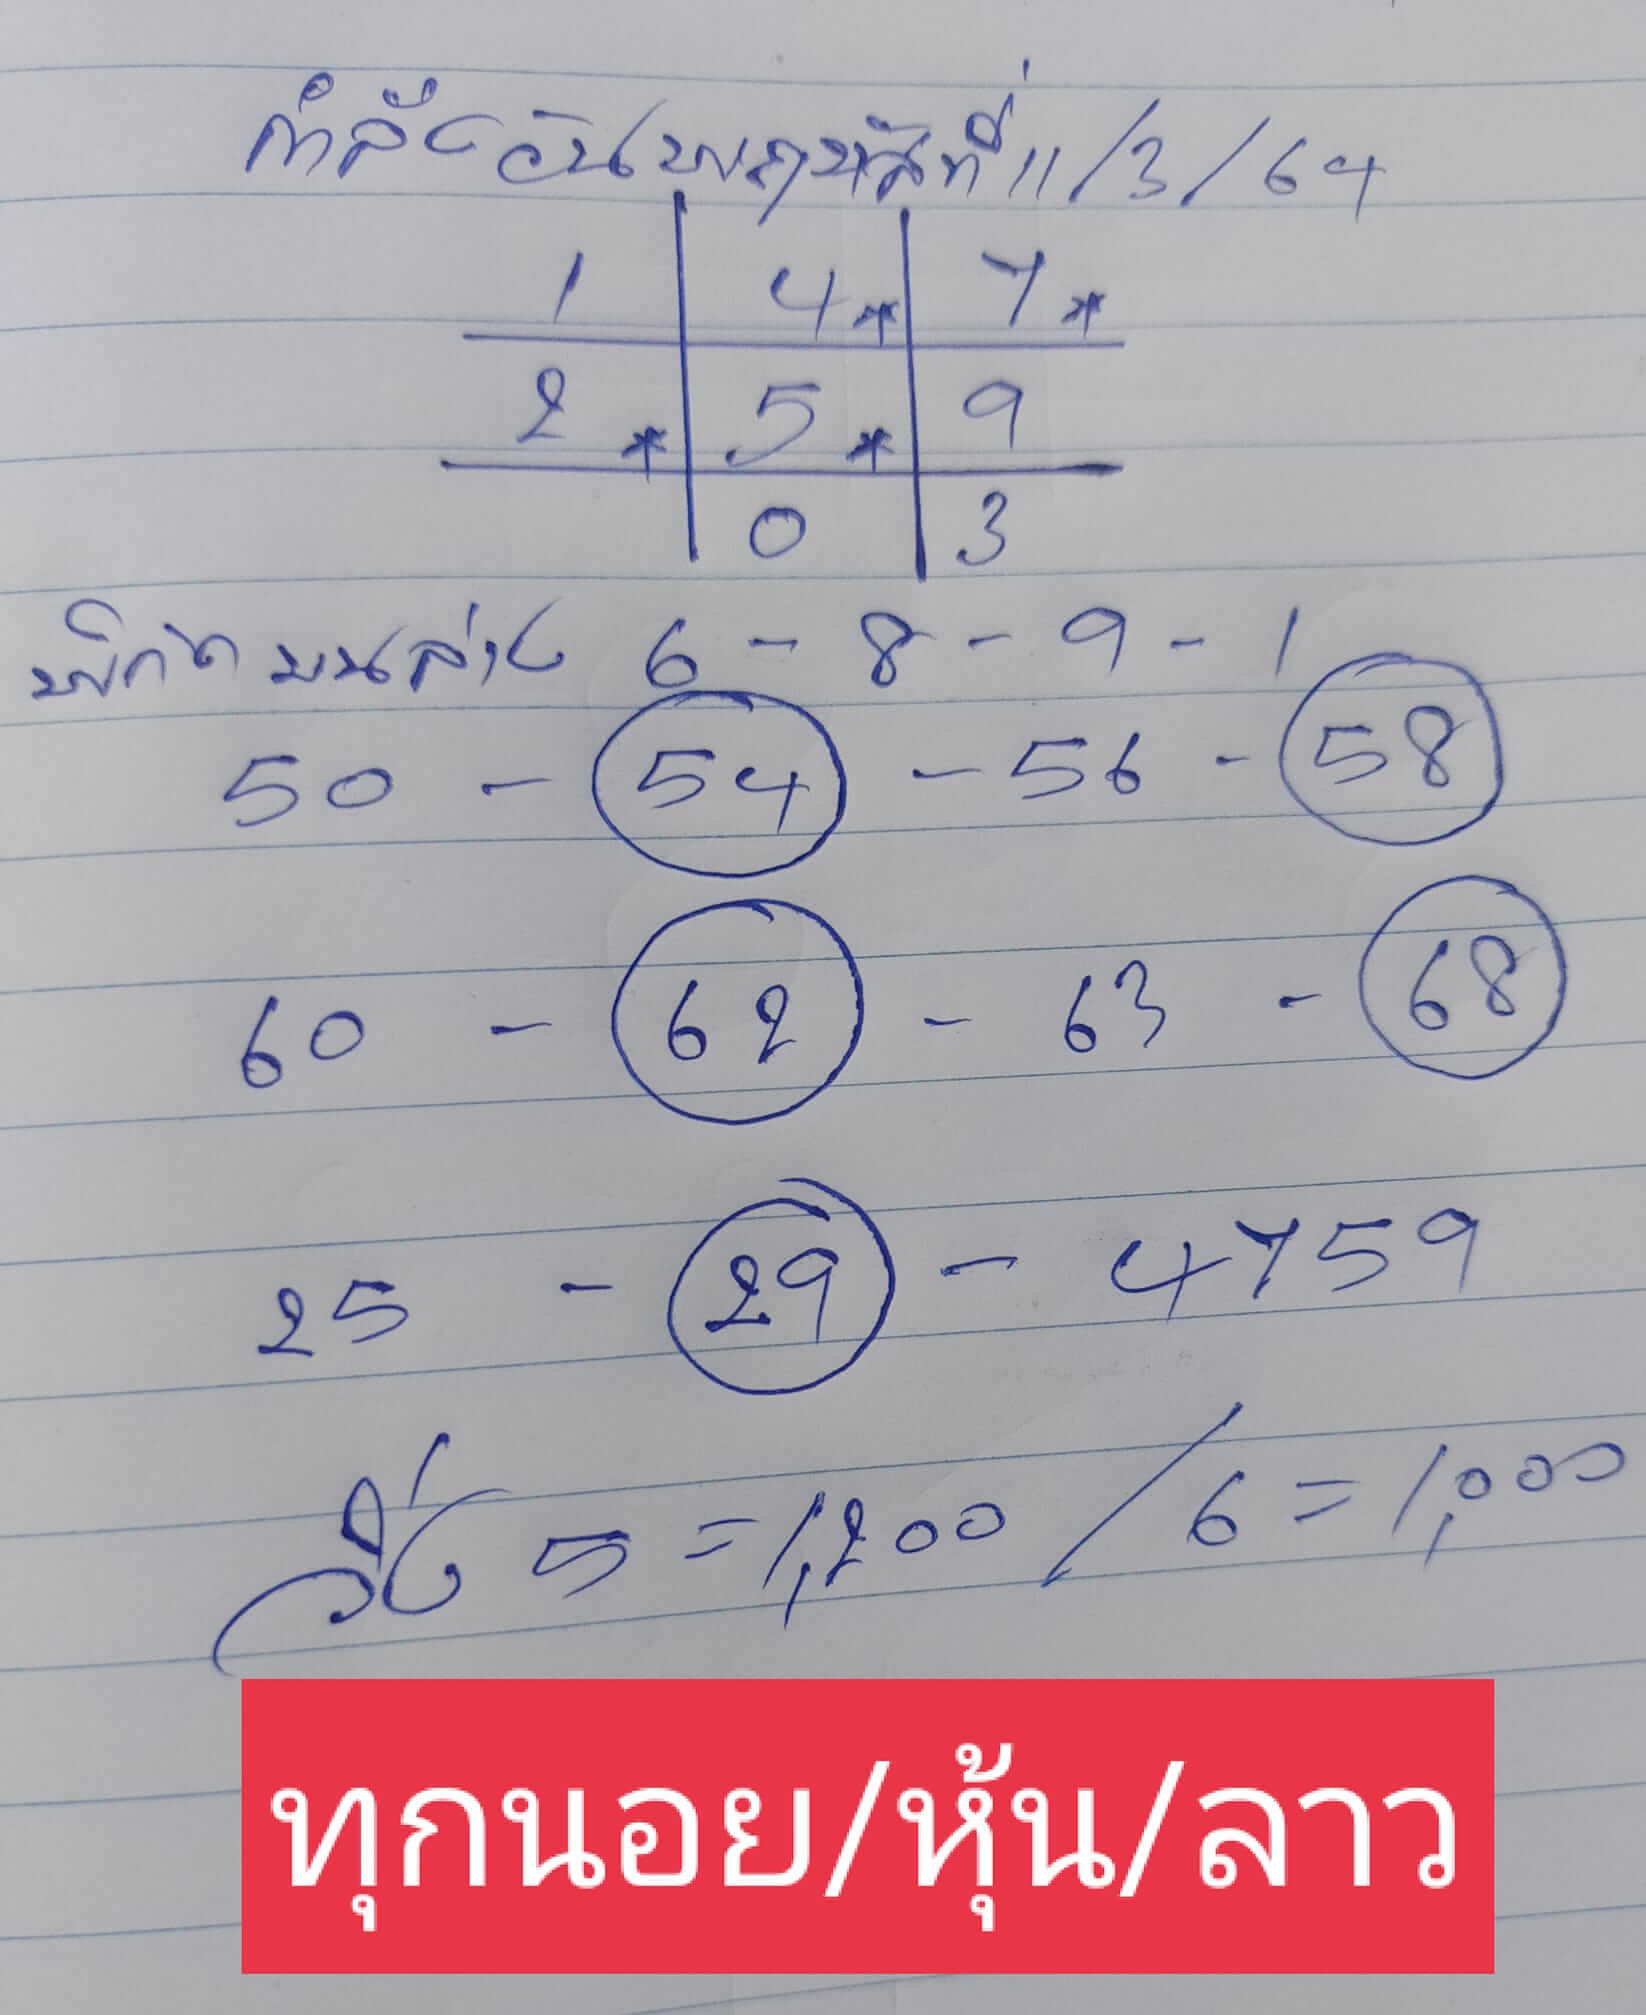 กำลังวันพฤหัสที่ 11/3/64
1 4* 7*
2* 5* 9
0 3
พิกัดบนล่าง 6-8-9-1
50 - 54 - 56 - 58
60 - 62 - 63 - 68
25 - 29 - 4759
วิ่ง 5 = 1,200 / 6 = 1,000
ทุกนอย/หุ้น/ลาว